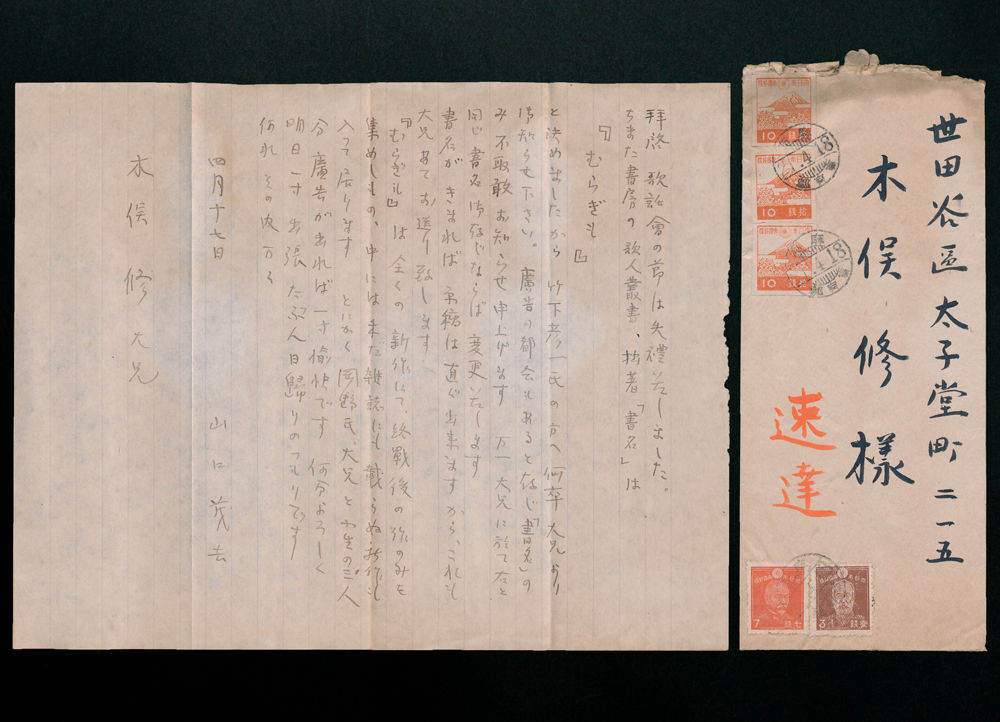 世田谷區太子堂町二一五
木俣修様
速達
拝啓 歌話會の節は失禮致しました。
ちまた書房の歌人叢書、拙著「書名」は
『むらぎも』
と決めましたから 竹下彦一氏の方へ何卒大兄より
御知らせ下さい。廣告の都合もあると存じ「書名」の
み不取敢お知らせ申上げます 万一大兄に於て
同じ書名御存じならば変更いたします
書名がきまれば原稿は直ぐ出来ますから、これも
大兄あてお送り致します
『むらぎも』は全くの新作にて、終戰後の作のみを
集めしもの、中には未だ雑誌にも載らぬ新作も
入って居ります とにかく岡野氏、大兄と小生の三人
分 廣告が出れば一寸愉快です 何分よろしく
明日一寸出張 たぶん日歸りのつもりです
何れその内 万々
四月十七日
山口茂吉
木俣修大兄
10
拾銭
10
拾銭
10
拾銭
7
七銭
3
参銭